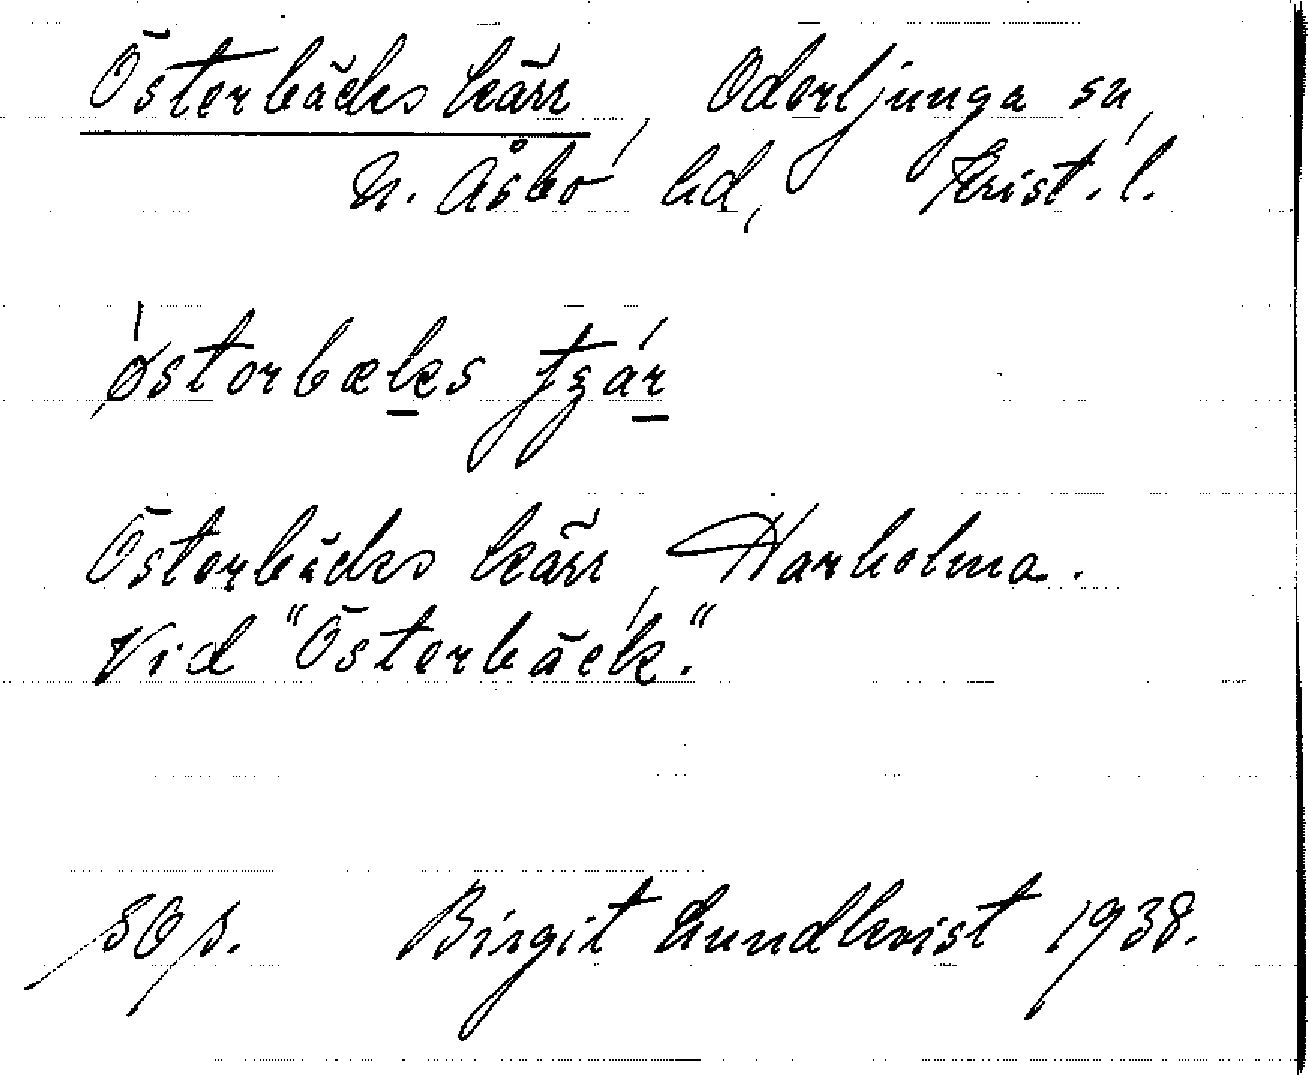 Österbäcks kärr, Oderljunga sn,
N. Åsbo hd, Krist. l.
østorbæks tʒár
Österbäcks kärr, Harholma.
Vid "Österbäck."
Birgit Lundkvist 1938.